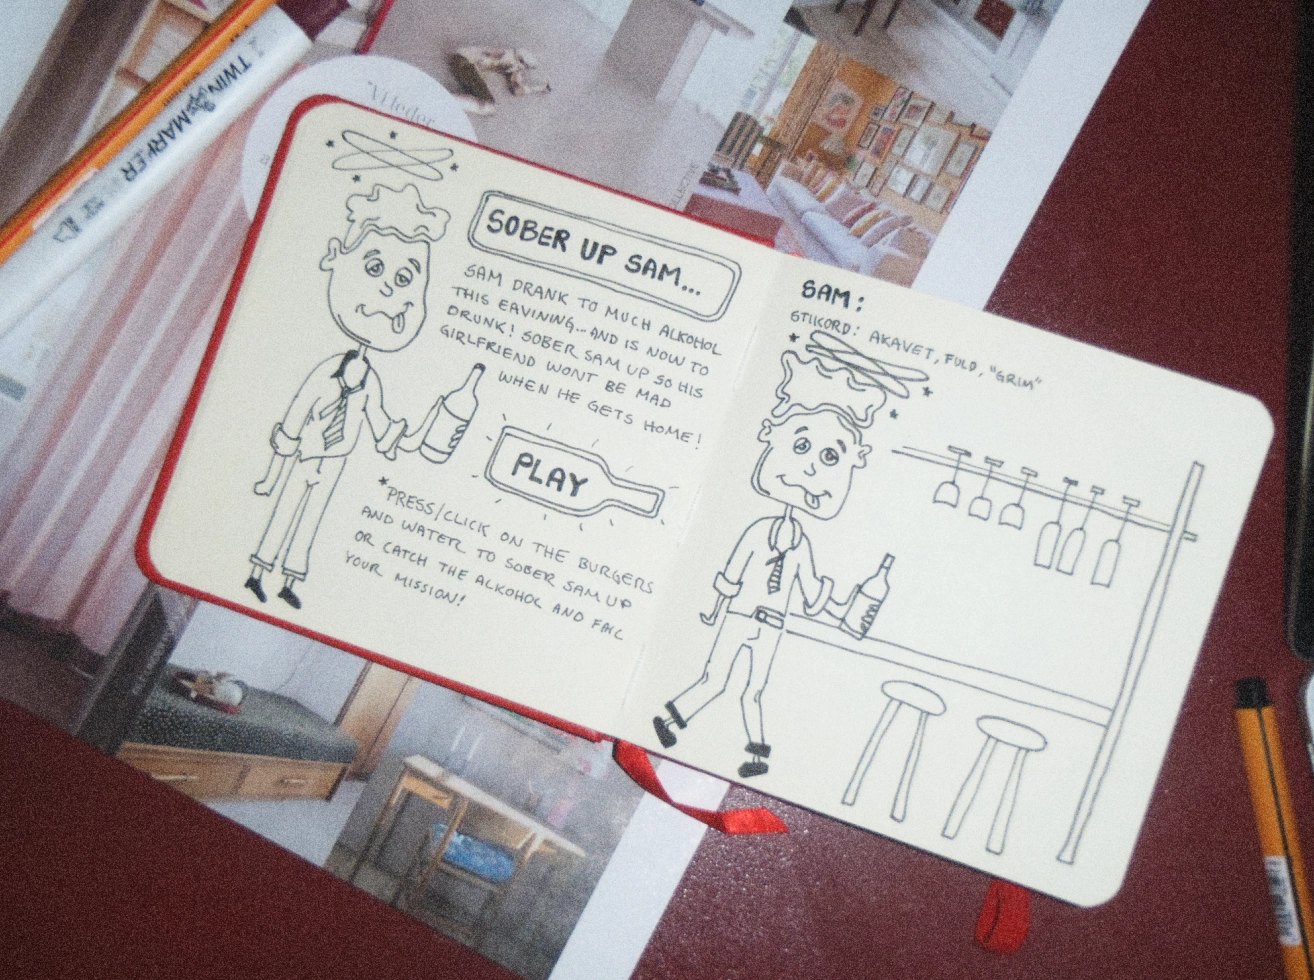 TWIN
MARKER
SOBER UP SAM...
SAM DRANK TO MUCH ALKOHOL
THIS EAVINING...AND IS NOW TO
DRUNK! SOBER SAM UP SO HIS
GIRLFRIEND WONT BE MAD
WHEN HE GETS HOME!
PLAY
*PRESS/CLICK ON THE BURGERS
AND WATER TO SOBER SAM UP
OR CATCH THE ALKOHOL AND FAIL
YOUR MISSION!
SAM:
STIKORD: AKAVET, FULD, "GRIM"